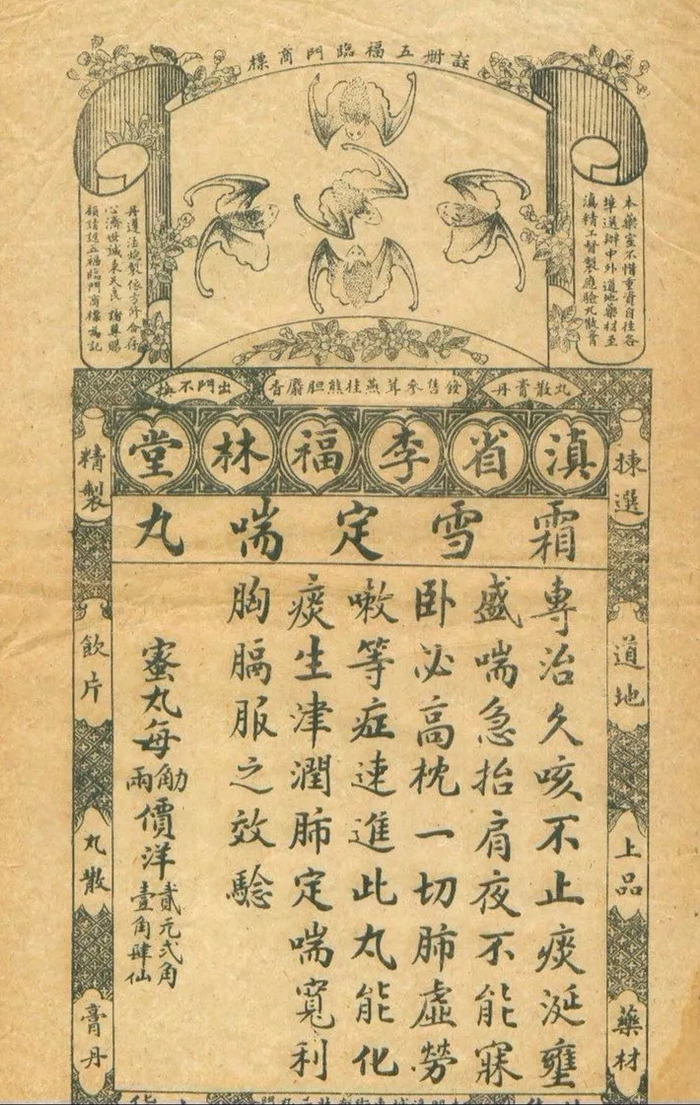 註冊五福臨門商標
本藥室不惜重資自往各
埠選辦中外道地藥材至
滇精工督製應驗丸散膏
丹遵法炮製依方修合存
心濟世誠來天良 諸尊賜
顧請認五福臨門商標為記
丸散膏丹
發售參茸燕桂熊胆麝香
出門不換
滇省李福林堂
揀選
道地
上品
藥材
精製
飲片
丸散
膏丹
霜雪定喘丸
專治久咳不止痰涎壅
盛喘急抬肩夜不能寐
卧必高枕一切肺虛勞
嗽等症連進此丸能化
痰生津潤肺定喘寬利
胸膈服之效驗
蜜丸每觔兩價洋貳元弍角壹角肆仙